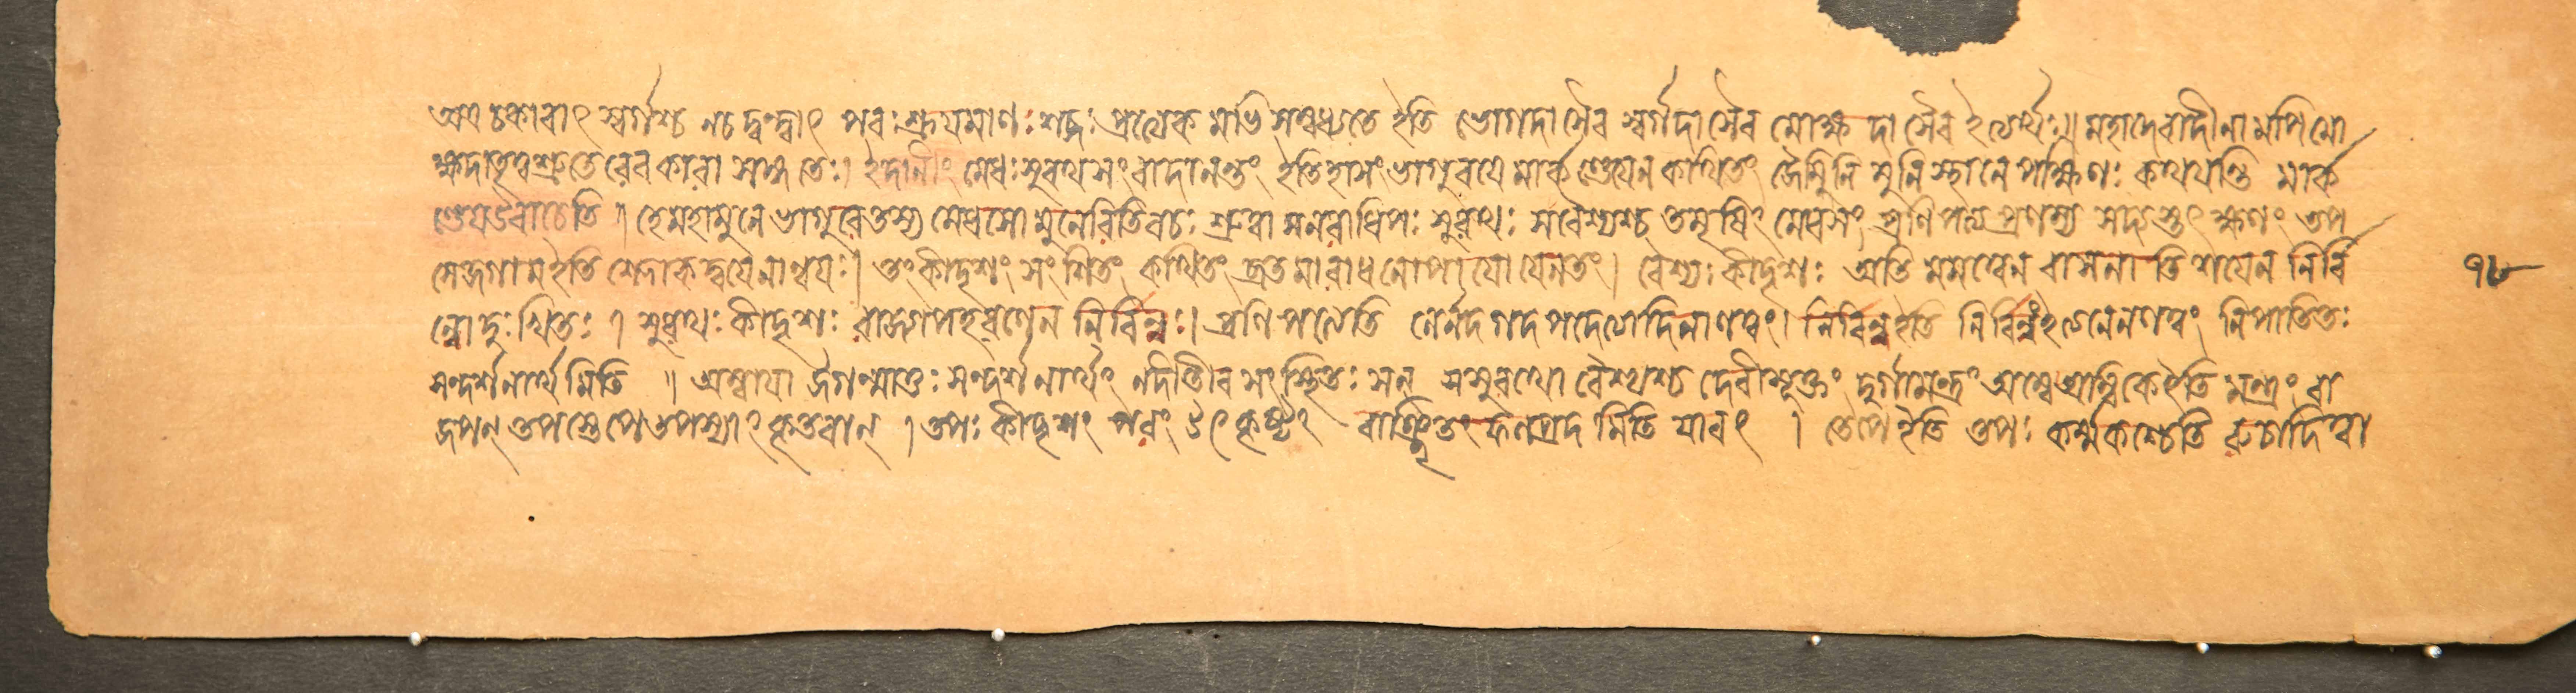 অত্র চকারাৎ স্বর্গশ্চ নচ দ্বন্দ্বাৎ পরঃ শ্রূযমাণঃ শব্দঃ প্রত্যেক মভি সম্বধ্যতে ইতি ভোগদা সৈব স্বর্গদা সৈব মোক্ষ দা সৈব ইত্যর্থঃ॥ মহাদেবাদীনা মপি মো
ক্ষদাতৃত্বশ্রুতেরেবকারা সঙ্গতেঃ। ইদানীং মেধঃ সুরথ সংবাদানন্তং ইতি হাসং ভাগুরযে মার্কণ্ডেযেন কথিতং জৈমুনি মুনি স্থানে পক্ষিণঃ কথযন্তি মার্ক
ণ্ডেয উবাচেতি । হে মহামুনে ভাগুরে তস্য মেধসো মুনেরিতি বচঃ শ্রুত্বা সনরাধিপঃ সুরথঃ সবৈশ্যশ্চ তমৃষিং মেধসং প্রণিপত্য প্রণম্য সদ্যস্তৎ ক্ষণং তপ
সে জগাম ইতি শ্লোক দ্বযেনান্বযঃ। তং কীদৃশং সংশিতং কথিতং ব্রত মারাধনোপাযো যেন তং। বৈশ্যঃ কীদৃশঃ অতি মমত্বেন বাসনাতি শযেন নির্বি
ন্নো দুঃখিতঃ । সুরথঃ কীদৃশঃ রাজ্যাপহরণেন নির্বিন্নঃ। প্রণি পত্যেতি নের্নদ গদ পদেত্যাদিনা ণত্বং। নির্বিন্ন ইতি নির্বিন্নং ণত্বং নিপাতিতঃ
সন্দর্শনার্থ মিতি ॥ অম্বাযা জগন্মাতুঃ সন্দর্শনার্থং নদীতীর সংস্থিতঃ সন্ সসুরথো বৈশ্যশ্চ দেবীসূক্তং দুর্গামন্ত্রং অম্বে অম্বিকে ইতি মন্ত্রং বা
জপন্ তপস্তেপে তপস্যাং কৃতবান্ । তপঃ কীদৃশং পরং উৎকৃষ্টং ফলপ্রদ মিতি যাবৎ । তেপে ইতি তপঃ কর্ম্মকশ্চেতি রুচাদিত্বা
১৮